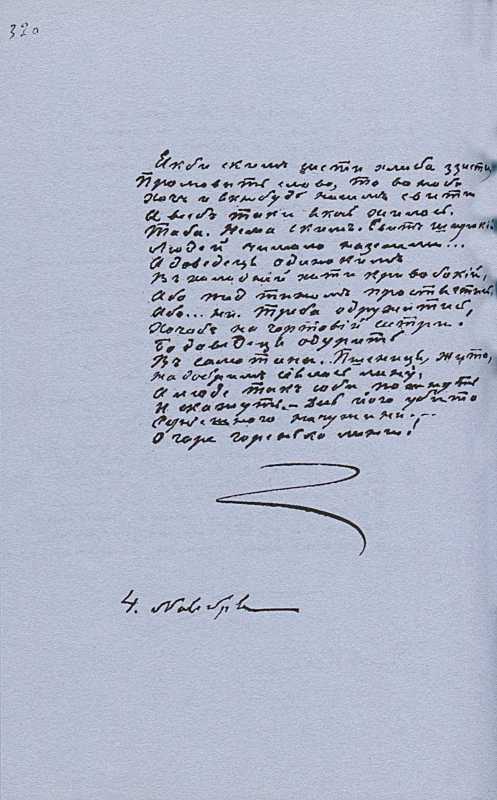 320
Якби скимъ систи хлиба ззисти,
Промовить слово, то вонобъ
Хочъ и якнебудь насимъ свити
А всебъ таки якось жилось.
Таба. Нема скимъ. Свитъ широкій
Людей чимало наземли...
А доведеця одинокимъ
Въ холодній хати кривобокій,
Або пид тиномъ простягтись,
Або... ни. Треба одружитись,
Хочабъ на чортовій сестри.
Бо доведеця одурить
Въ самотини. Пшениця, жито,
На добримъ сіялись лану,
А люде такъ соби пожнуть
И скажуть. — Десь його убито
Сердешного начужини...
О горе горенько мени!
4. Ноября